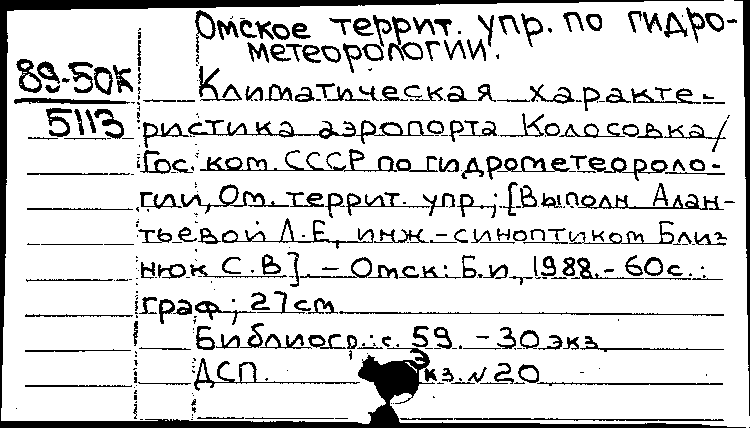 Омское террит. упр. по гидро-
метеорологии.
89-50К
5113
Климатическая характе-
ристика аэропорта Колосовка/
Гос. ком. СССР по гидрометеороло-
гии, Ом. террит. упр.; [Выполн. Алан-
тьевой Л.Е., инж.-синоптиком Близ-
нюк С.В]. - Омск: Б.и, 1988. - 60с.:
граф; 27см.
Библиогр.: с. 59. - 30 экз.
ДСП. Экз. № 20.